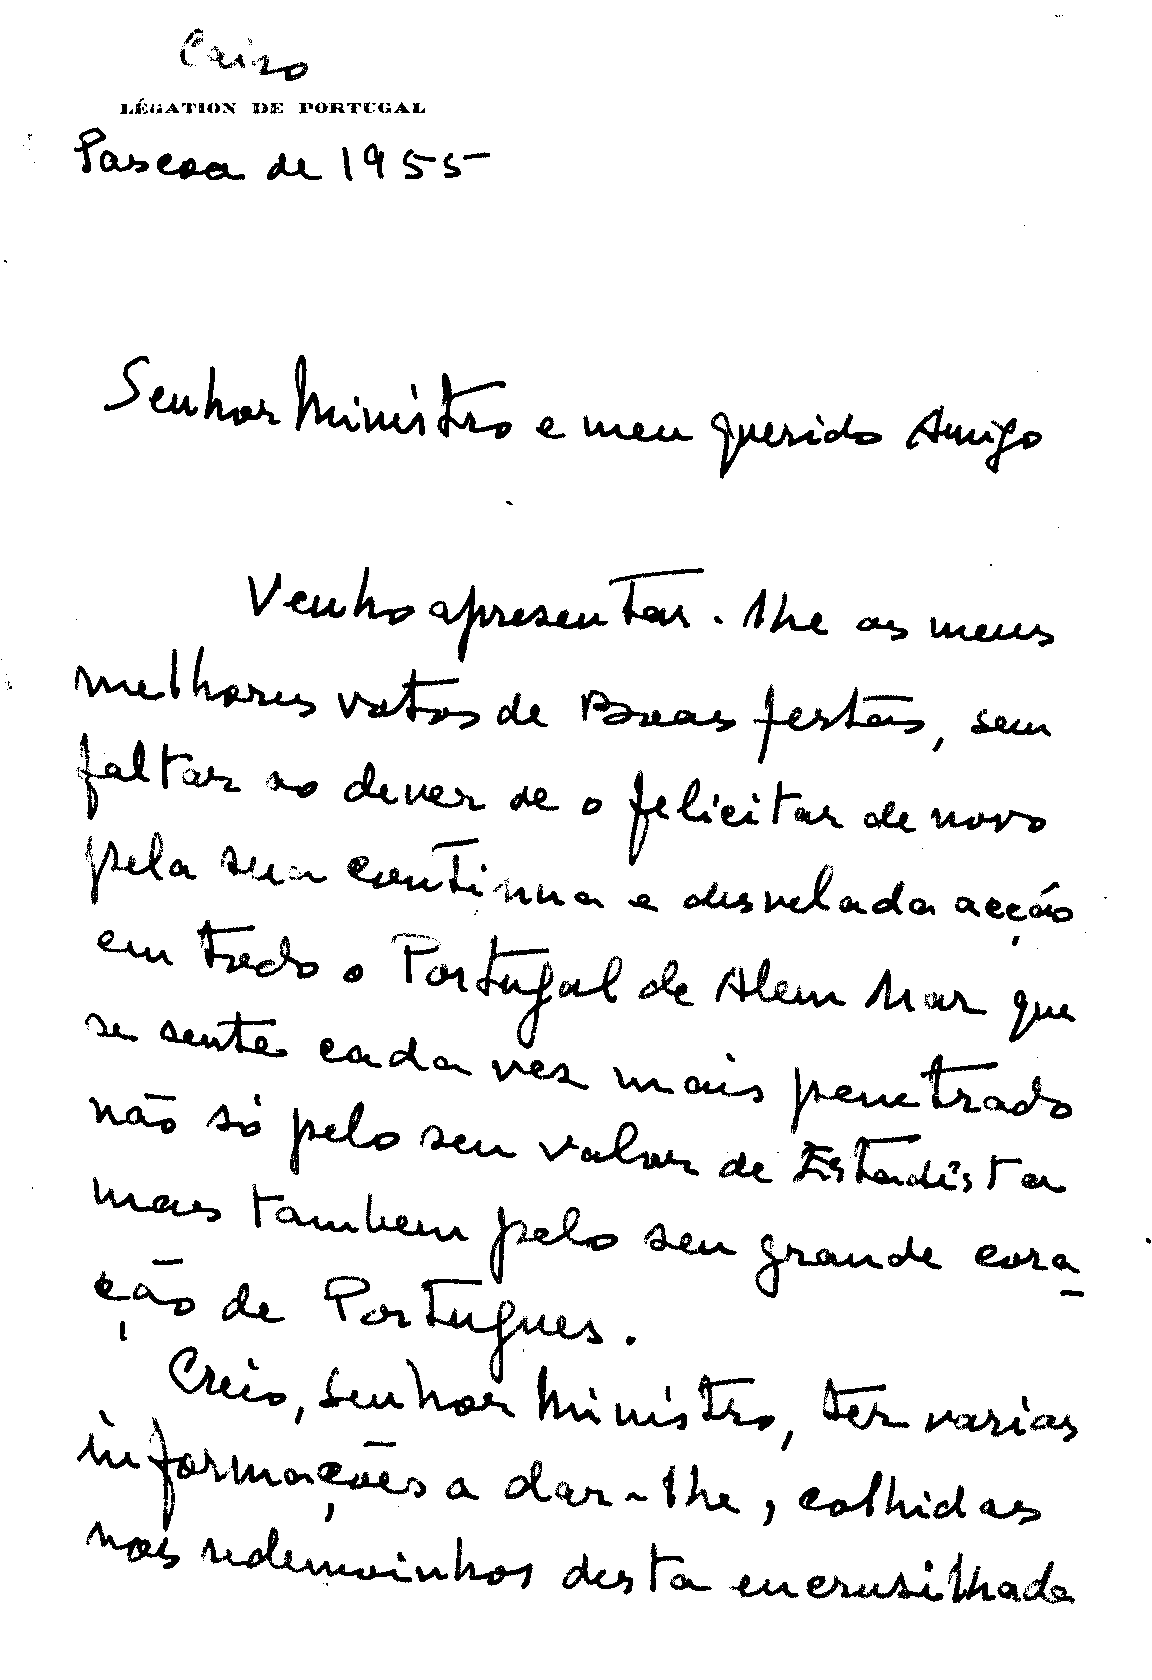 Cairo
LÉGATION DE PORTUGAL
Pascoa de 1955
Senhor Ministro e meu querido Amigo
Venho apresentar-lhe os meus
melhores votos de Boas festas, sem
faltar ao dever de o felicitar de novo
pela sua continua e desvelada acção
em todo o Portugal de Alem Mar que
se sente cada vez mais penetrado
não só pelo seu valor de Estadista
mas tambem pelo seu grande cora-
ção de Portugues.
Creio, Senhor Ministro, ter varias
informações a dar-lhe, colhidas
nos redemoinhos desta encrusilhada